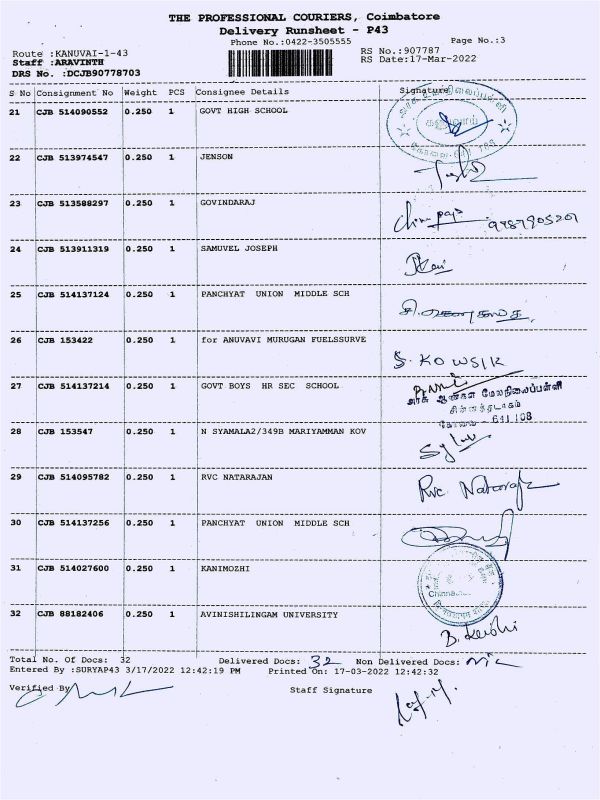 THE PROFESSIONAL COURIERS, Coimbatore
Delivery Runsheet - P43
Phone No.:0422-3505555
Page No.:3
Route :KANUVAI-1-43
RS No.:907787
Staff :ARAVINTH
RS Date:17-Mar-2022
DRS No. :DCJB90778703
S No Consignment No Weight PCS Consignee Details Signature
21 CJB 514090552 0.250 1 GOVT HIGH SCHOOL
22 CJB 513974547 0.250 1 JENSON
23 CJB 513588297 0.250 1 GOVINDARAJ
24 CJB 513911319 0.250 1 SAMUVEL JOSEPH
25 CJB 514137124 0.250 1 PANCHYAT UNION MIDDLE SCH
26 CJB 153422 0.250 1 for ANUVAI MURUGAN FUELSSURVE
S. KOWSIK
27 CJB 514137214 0.250 1 GOVT BOYS HR SEC SCHOOL
அரசு ஆண்கள் மேலநிலைப்பள்ளி
சின்னத்தடாகம்
கோவை - 641 108
28 CJB 153547 0.250 1 N SYAMALA2/349B MARIYAMMAN KOV
29 CJB 514095782 0.250 1 RVC NATARAJAN
Rvc. Nataraj
30 CJB 514137256 0.250 1 PANCHYAT UNION MIDDLE SCH
31 CJB 514027600 0.250 1 KANIMOZHI
32 CJB 88182406 0.250 1 AVINISHILINGAM UNIVERSITY
Total No. Of Docs: 32 Delivered Docs: 32 Non Delivered Docs: Nil
Entered By :SURYAP43 3/17/2022 12:42:19 PM Printed On: 17-03-2022 12:42:32
Verified By Staff Signature